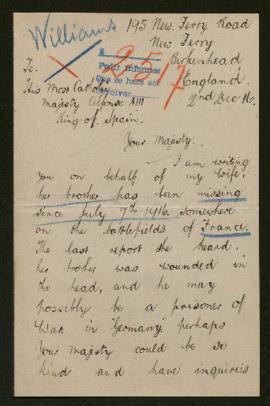 Williams
195 New Ferry Road
New Ferry
Birkenhead
England
2nd Dec 16.
257
Pedir informes
que se hace an
To.
His Most Catholic
Majesty Alfonso XIII
King of Spain.
Your Majesty.
I am writing
You on behalf of my wife,
her brother has been missing
since July 7th 1916. somewhere
on the battlefields of France.
The last report she heard,
her brother was wounded in
the head, and he may
possibly be a prisoner of
War in "Germany" perhaps
Your Majesty could be so
kind and have inquiries